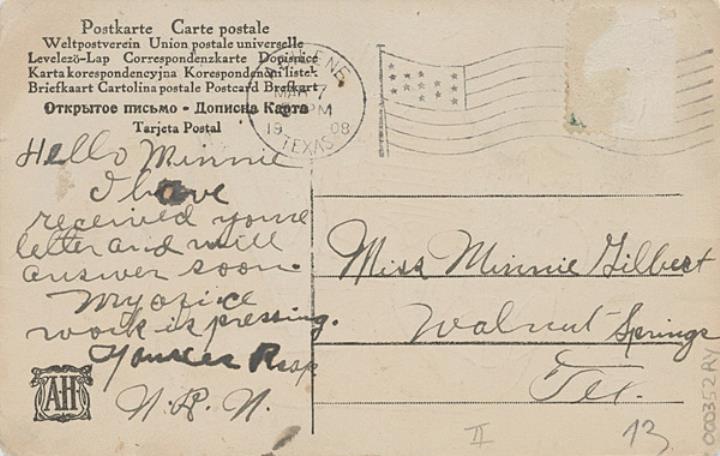 Postkarte Carte postale
Weltpostverein Union postale universelle
Levelező-Lap Correspondenzkarte Dopisnice
Karta korespondencyjna Korespondenční lístek
Briefkaart Cartolina postale Postcard Brefkort
Открытое письмо - Дописна Карта
Tarjeta Postal
ABILENE,
MAR 7
PM
19 08
TEXAS
Hello Minnie
I have
received your
letter and will
answer soon.
My office
work is pressing.
Yours Resp
N.P.N.
AH
Miss Minnie Gilbert
Walnut Springs
Tex.
II
13
000352RY